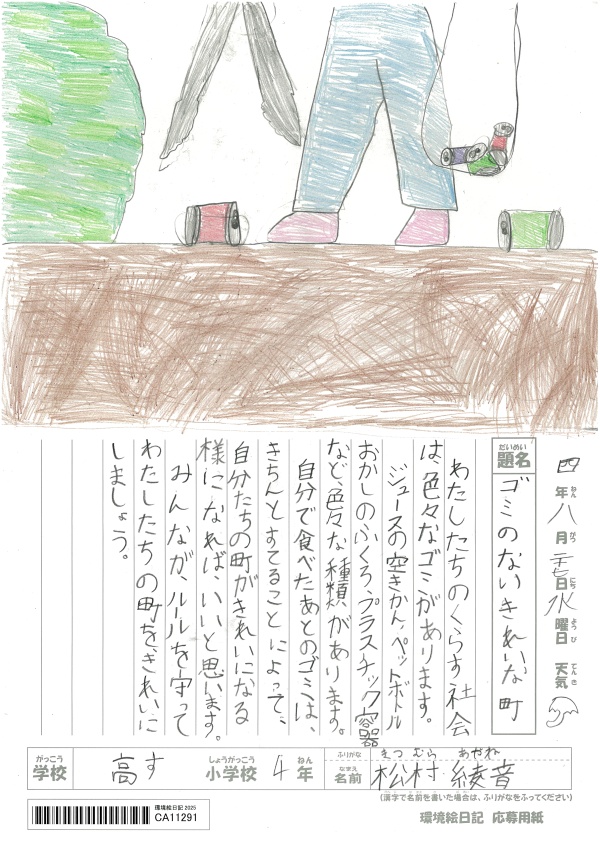 四年八月 日水曜日 天気
ねん がつ にち ようび てんき
題名 ゴミのないきれいな町
だいめい
わたしたちのくらす社会
は、色々なゴミがあります。
ジュースの空きかん、ペットボトル
おかしのふくろ、プラスチック容器
など、色々な種類があります。
自分で食べたあとのゴミは、
きちんとすてることによって、
自分たちの町がきれいになる
様になれば、いいと思います。
みんなが、ルールを守って
わたしたちの町を、きれいに
しましょう。
がっこう しょうがっこう ねん ふりがな まつ むら あやね
学校 高す 小学校 4年 名前 松村 綾音
なまえ
(漢字で名前を書いた場合は、ふりがなをふってください)
環境絵日記 2025
CA11291
環境絵日記 応募用紙